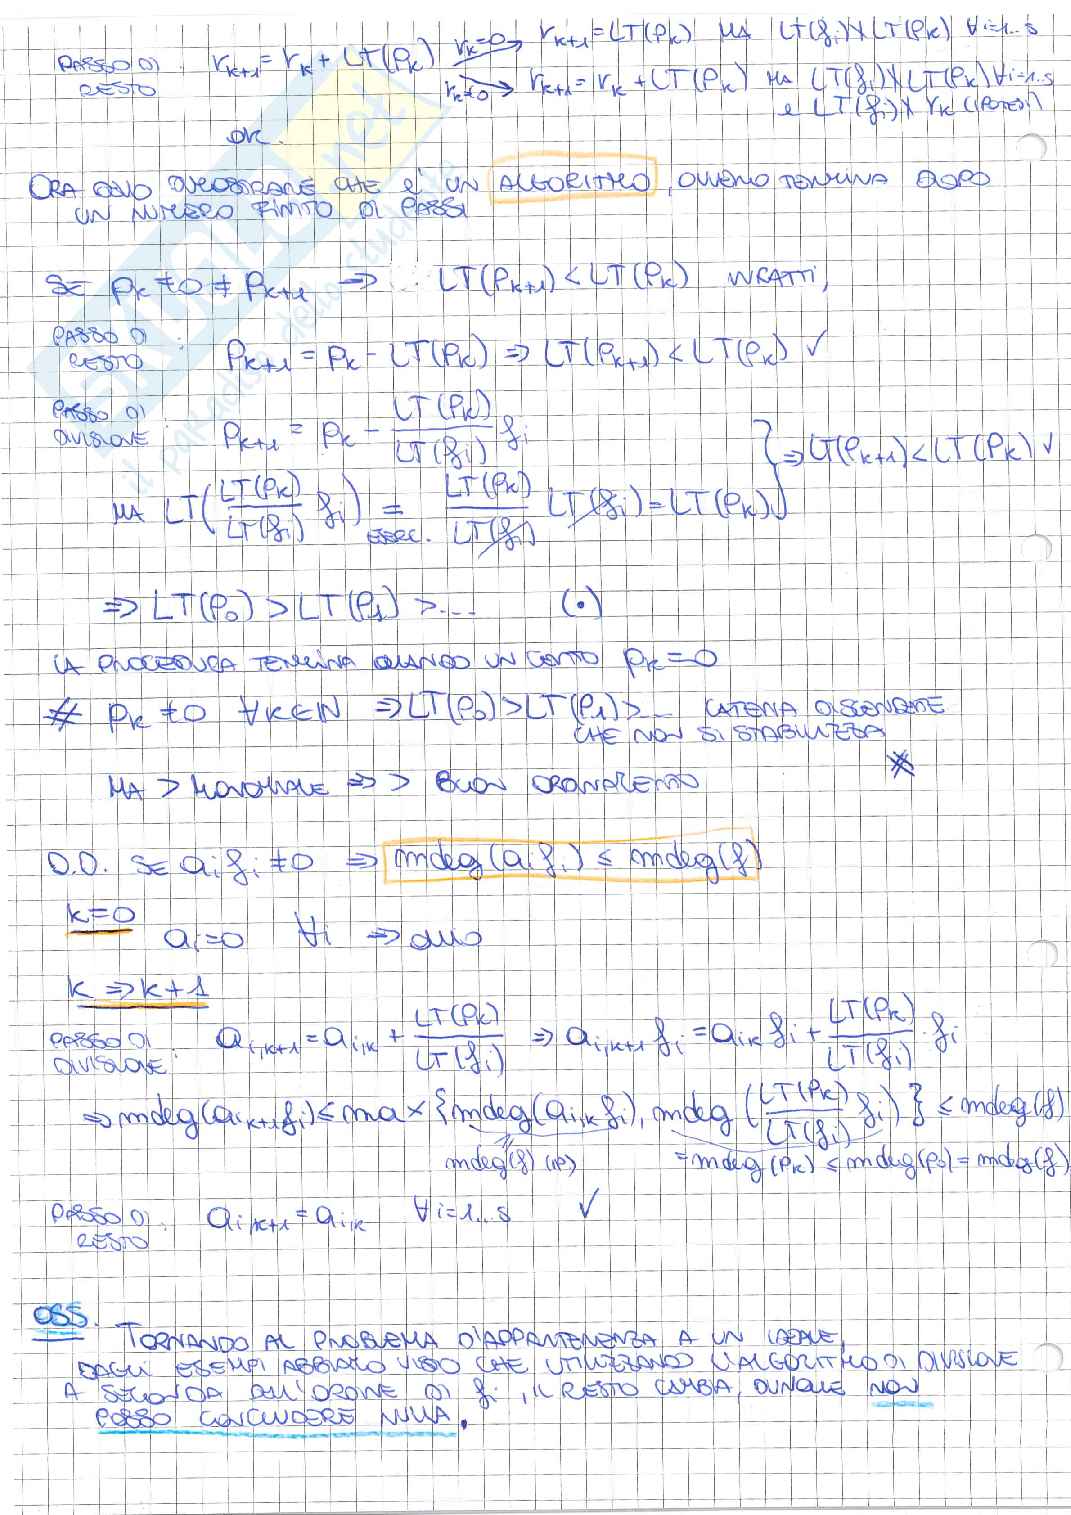 PASSO DI RESTO : r_{k+1} = r_k + LT(p_k) r_k=0 → r_{k+1} = LT(p_k) MA LT(f_i) ∤ LT(p_k) ∀i=1...s
r_k≠0 → r_{k+1} = r_k + LT(p_k) MA LT(f_i) ∤ LT(p_k) ∀i=1..s
e LT(f_i) ∤ r_k (IPOTESI)
OK.
ORA DEVO DIMOSTRARE CHE È UN ALGORITMO, OVVERO TERMINA DOPO
UN NUMERO FINITO DI PASSI
SE p_k ≠ 0 ≠ p_{k+1} ⇒ LT(p_{k+1}) < LT(p_k) INFATTI,
PASSO DI RESTO : p_{k+1} = p_k - LT(p_k) ⇒ LT(p_{k+1}) < LT(p_k) ✓
PASSO DI DIVISIONE : p_{k+1} = p_k - LT(p_k)/LT(f_i) f_i
MA LT(LT(p_k)/LT(f_i) f_i) = ESERC. LT(p_k)/LT(f_i) LT(f_i) = LT(p_k) } ⇒ LT(p_{k+1}) < LT(p_k) ✓
⇒ LT(p_0) > LT(p_1) > .... (•)
LA PROCEDURA TERMINA QUANDO UN CERTO p_k = 0
# p_k ≠ 0 ∀k∈ℕ ⇒ LT(p_0) > LT(p_1) > ... CATENA DISCENDENTE
CHE NON SI STABILIZZA
MA > MONOMIALE ⇒ > BUON ORDINAMENTO
D.D. SE a_i f_i ≠ 0 ⇒ mdeg(a_i f_i) ≤ mdeg(f)
k=0
a_i = 0 ∀i ⇒ OVVIO
k ⇒ k+1
PASSO DI DIVISIONE : a_{i,k+1} = a_{i,k} + LT(p_k)/LT(f_i) ⇒ a_{i,k+1} f_i = a_{i,k} f_i + LT(p_k)/LT(f_i) · f_i
⇒ mdeg(a_{i,k+1} f_i) ≤ max {mdeg(a_{i,k} f_i), mdeg(LT(p_k)/LT(f_i) f_i)} ≤ mdeg(f)
mdeg(f) (IP) = mdeg(p_k) ≤ mdeg(p_0) = mdeg(f)
PASSO DI RESTO : a_{i,k+1} = a_{i,k} ∀i=1...s ✓
OSS. TORNANDO AL PROBLEMA D'APPARTENENZA A UN IDEALE,
DAGLI ESEMPI ABBIAMO VISTO CHE UTILIZZANDO L'ALGORITMO DI DIVISIONE
A SECONDA DELL'ORDINE DI f_i, IL RESTO CAMBIA, DUNQUE NON
POSSO CONCLUDERE NULLA.